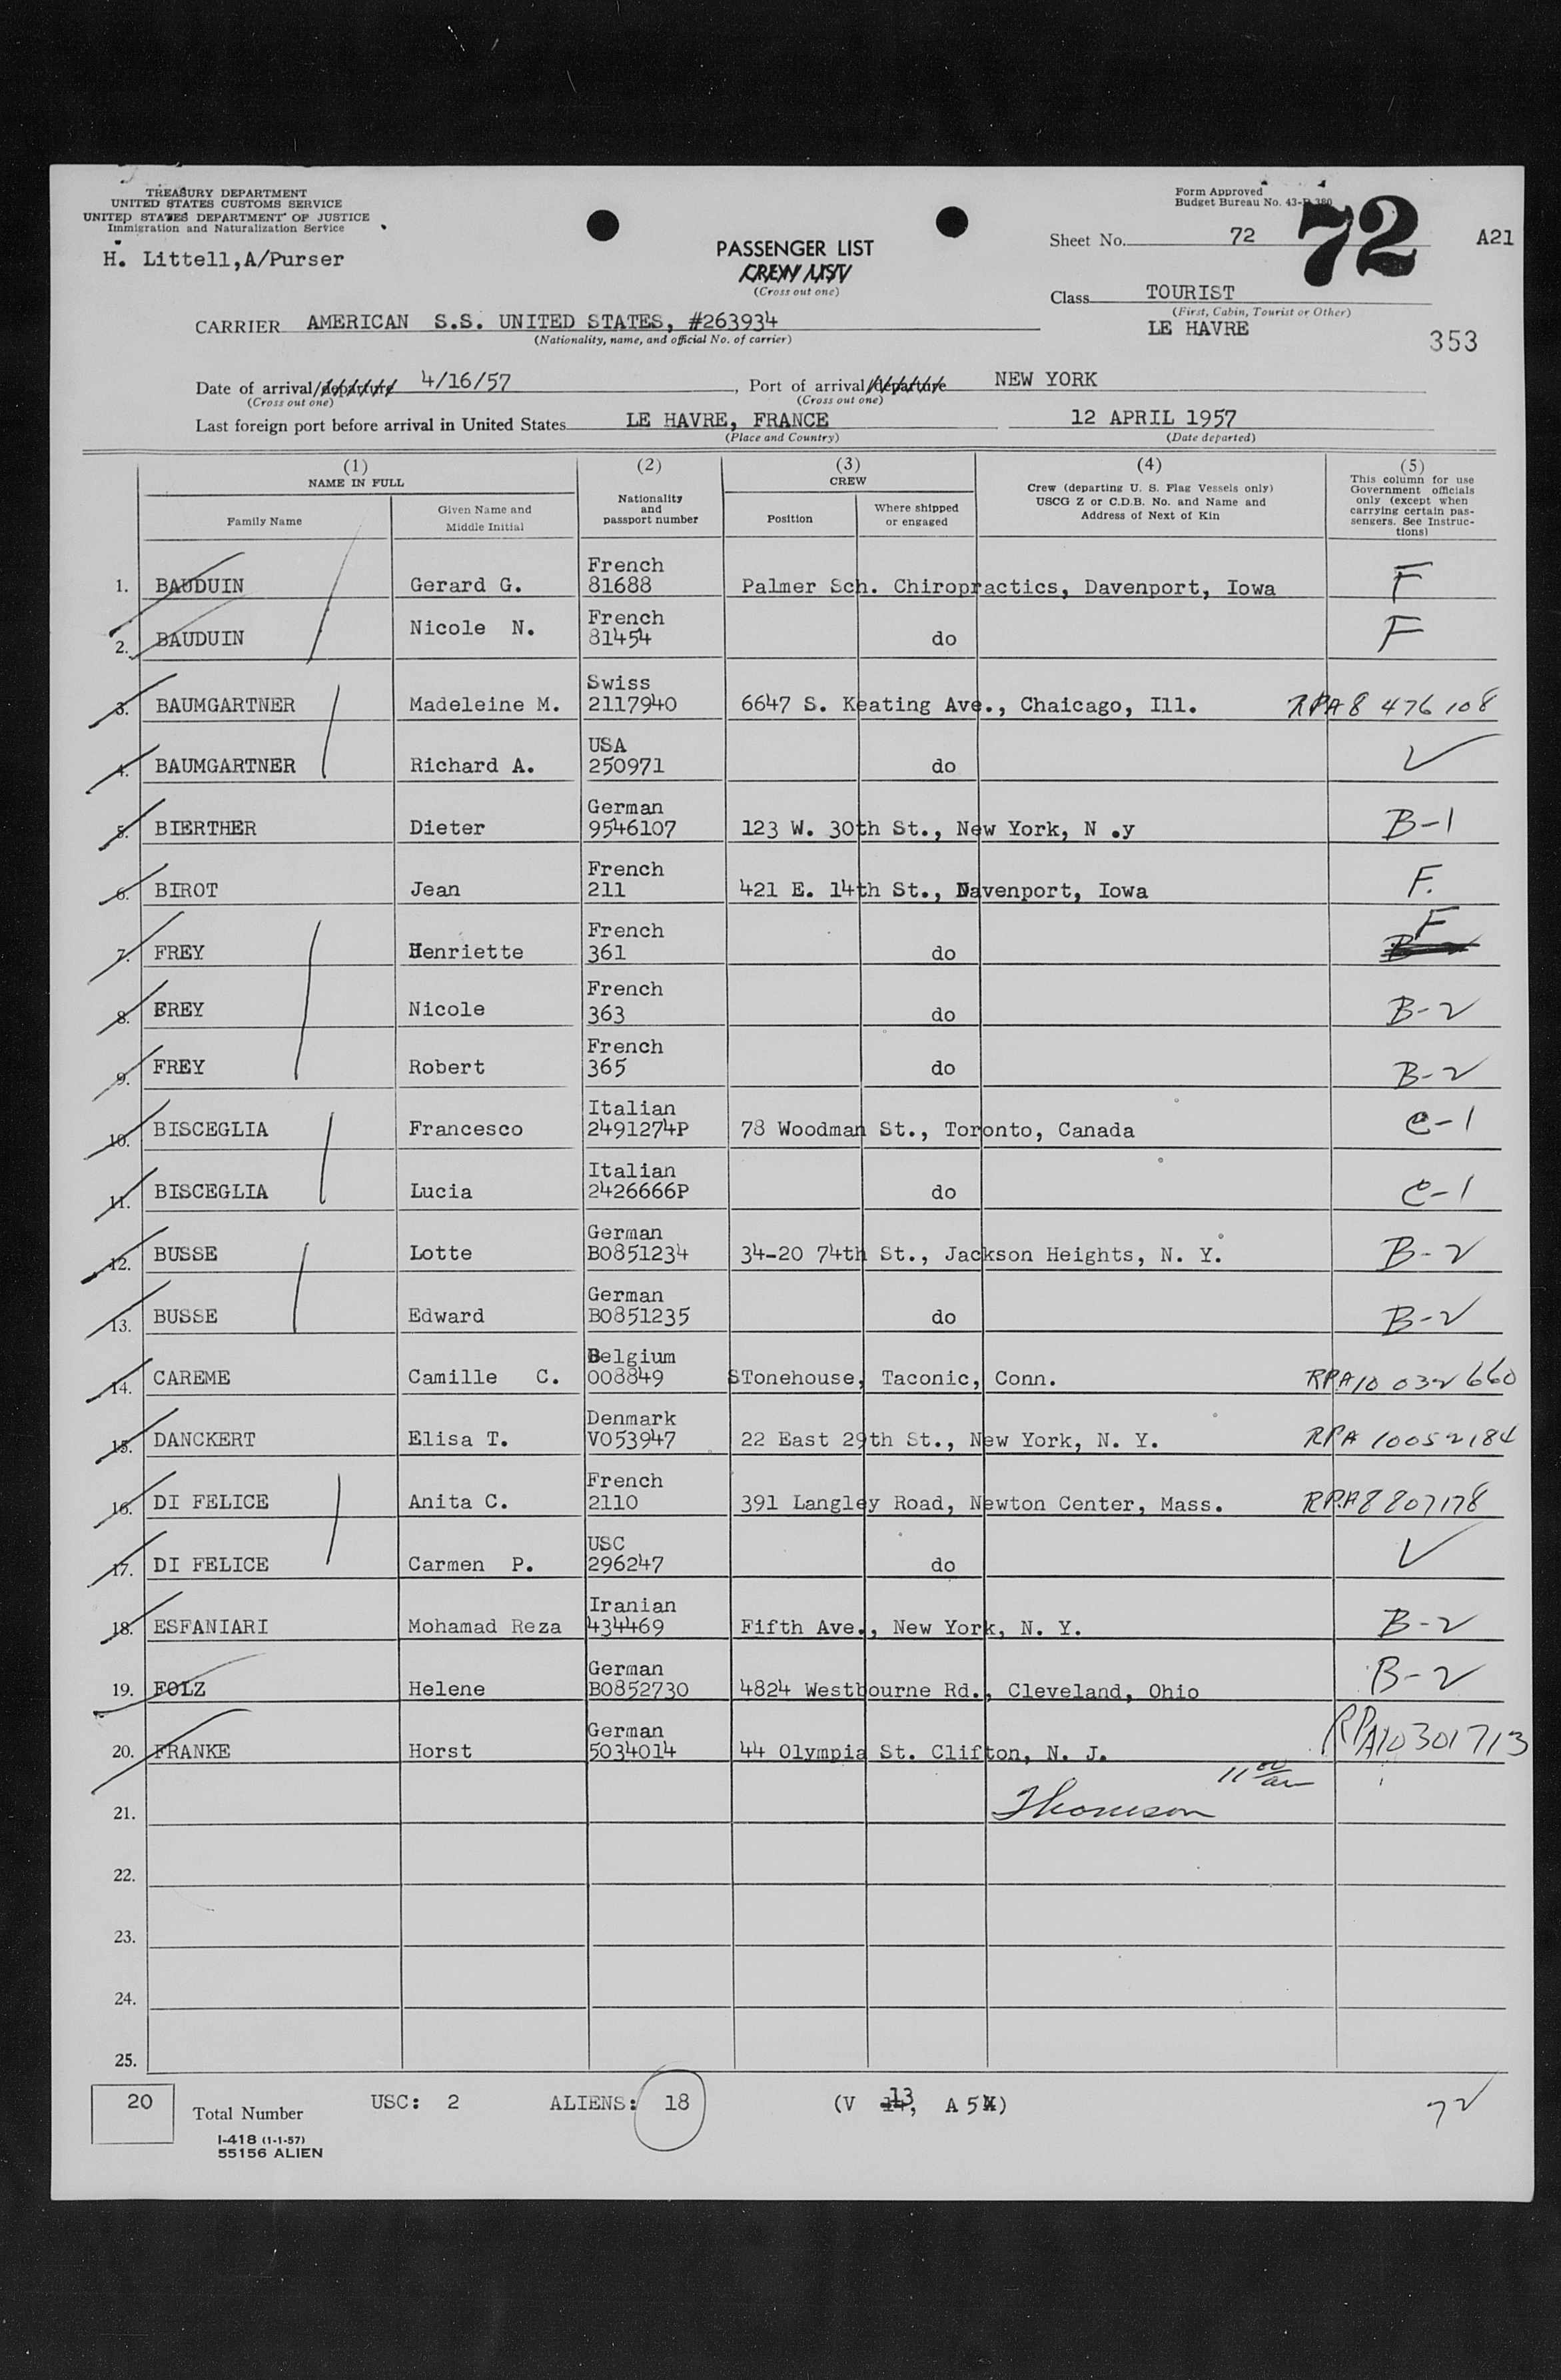 TREASURY DEPARTMENT
UNITED STATES CUSTOMS SERVICE
UNITED STATES DEPARTMENT OF JUSTICE
Immigration and Naturalization Service
H. Littell,A/Purser
Form Approved
Budget Bureau No. 43-R 380
PASSENGER LIST
CREW LIST
(Cross out one)
Sheet No. 72 72 A21
Class TOURIST
(First, Cabin, Tourist or Other)
LE HAVRE
353
CARRIER AMERICAN S.S. UNITED STATES, #263934
(Nationality, name, and official No. of carrier)
Date of arrival/departure 4/16/57, Port of arrival/departure NEW YORK
(Cross out one) (Cross out one)
Last foreign port before arrival in United States LE HAVRE, FRANCE 12 APRIL 1957
(Place and Country) (Date departed)
(1) NAME IN FULL
Family Name
Given Name and Middle Initial
(2) Nationality and passport number
(3) CREW
Position
Where shipped or engaged
(4) Crew (departing U. S. Flag Vessels only) USCG Z or C.D.B. No. and Name and Address of Next of Kin
(5) This column for use Government officials only (except when carrying certain passengers. See Instructions)
1. BAUDUIN Gerard G. French 81688 Palmer Sch. Chiropractics, Davenport, Iowa F
2. BAUDUIN Nicole N. French 81454 do F
3. BAUMGARTNER Madeleine M. Swiss 2117940 6647 S. Keating Ave., Chaicago, Ill. RPA8 476 108
4. BAUMGARTNER Richard A. USA 250971 do ✓
5. BIERTHER Dieter German 9546107 123 W. 30th St., New York, N .y B-1
6. BIROT Jean French 211 421 E. 14th St., Davenport, Iowa F.
7. FREY Henriette French 361 do F
8. FREY Nicole French 363 do B-2
9. FREY Robert French 365 do B-2
10. BISCEGLIA Francesco Italian 2491274P 78 Woodman St., Toronto, Canada C-1
11. BISCEGLIA Lucia Italian 2426666P do C-1
12. BUSSE Lotte German B0851234 34-20 74th St., Jackson Heights, N. Y. B-2
13. BUSSE Edward German B0851235 do B-2
14. CAREME Camille C. Belgium 008849 STonehouse, Taconic, Conn. RPA10 032 660
15. DANCKERT Elisa T. Denmark V053947 22 East 29th St., New York, N. Y. RPA 10052184
16. DI FELICE Anita C. French 2110 391 Langley Road, Newton Center, Mass. RPA8 807178
17. DI FELICE Carmen P. USC 296247 do ✓
18. ESFANIARI Mohamad Reza Iranian 434469 Fifth Ave., New York, N. Y. B-2
19. FOLZ Helene German B0852730 4824 Westbourne Rd., Cleveland, Ohio B-2
20. FRANKE Horst German 5034014 44 Olympia St. Clifton, N. J. RPA10301713
11 00 am
21. Thomson
22.
23.
24.
25.
20 Total Number USC: 2 ALIENS: 18 (V 13, A 5) 72
I-418 (1-1-57)
55156 ALIEN